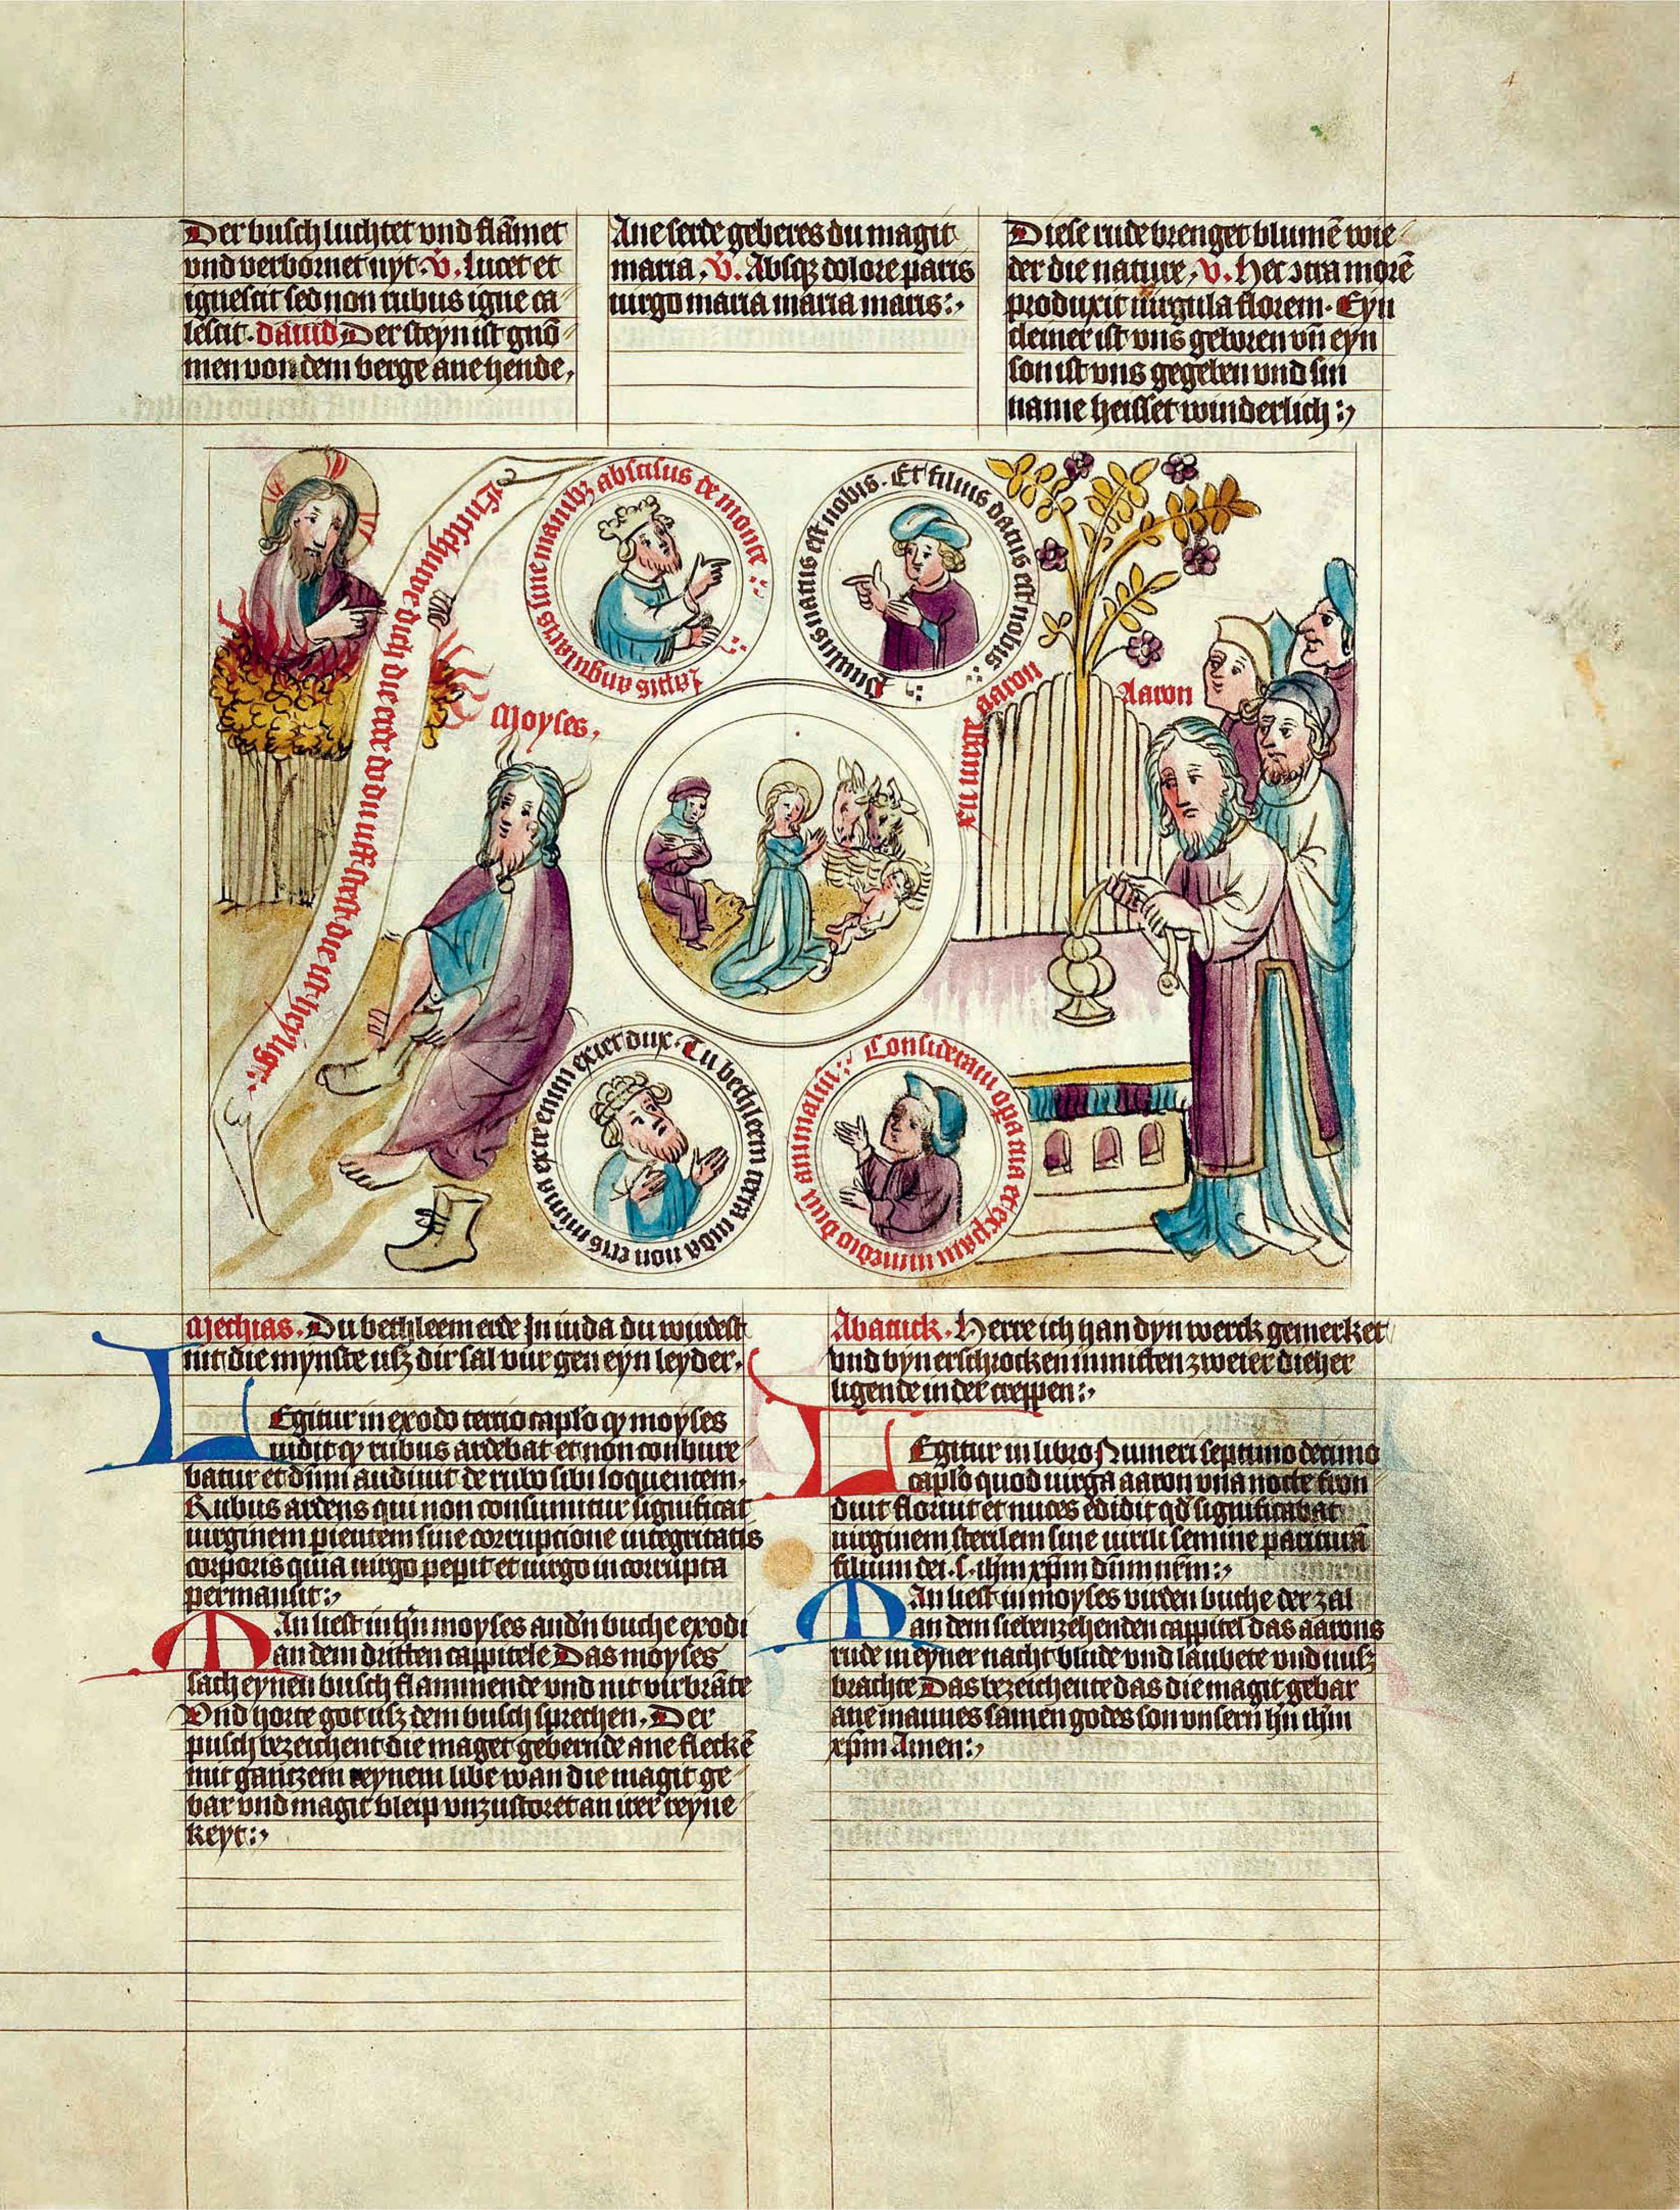 Der busch luchtet vnd flāmet
vnd verbornet nyt. v̄. lucet et
ignescit sed non rubus igne ca
lescit. dauid Der steyn ist gnō
men von dem berge ane hende.
Ane serde geberes du magit
maria. v̄. Absqꝫ dolore paris
uirgo maria maria maris:
Diese rude brenget blumē wie
der die nature. v. Hec ɔtra morē
produxit uirgula florem. Eyn
cleiner ist vns geboren vn̄ eyn
son ist vns gegeben vnd sin
name heisset wunderlich:
Entschuwe dich die erde do du uff stest die ist heylig:
Lapis angularis sine manibꝫ abscisus de monte:
Puer natus est nobis. Et filius datus est nobis:
Moyses.
Aaron
virge aaron
Tu bethleem terra iuda non eris minima ex te enim exiet dux.
Consideraui opera tua et expaui in medio duū animaliū:
Mechias. Du bethleem erde In iuda du wirdest
nit die mynste usz dir sal vur gen eyn leyder.
Legitur in exodo tercio capl̄o qꝫ moyses
uidit qꝫ rubus ardebat et non conbure
batur et dn̄m audiuit de rubo sibi loquentem.
Rubus ardens qui non consumitur significat
uirginem parientem sine corrupcione integritatis
corporis quia uirgo peperit et uirgo incorrupta
permansit:
Man liest in hn̄ moyses and'n buche exodi
an dem dritten cappitele Das moyses
sach eynen busch flammende vnd nit virbrāte
Vnd horte got usz dem busch sprechen. Der
pusch bezeichent die maget gebernde ane fleckē
mit gantzem reynem libe wan die magit ge
bar vnd magit bleip vnzustoret an irer reyne
keyt:
Abacuck. Herre ich han dyn werck gemerket
vnd byn erschrocken in mitten zweier dieher
ligende in der creppen:
Legitur in libro Numeri septimo decimo
capl̄o quod uirga aaron vna nocte fron
duit floruit et nuces edidit qd̄ significabat
uirginem sterilem sine uirili semine pariturā
filium dei. s. ihm xp̄m dn̄m nr̄m:
Man liest in moyses virden buche der zal
an dem siebenzehenden cappitel das aarons
rude in eyner nacht blude vnd laubete vnd nusz
brachte Das bezeichente das die magit gebar
ane mannes samen godes son vnsern hn̄ ihm
xp̄m Amen: